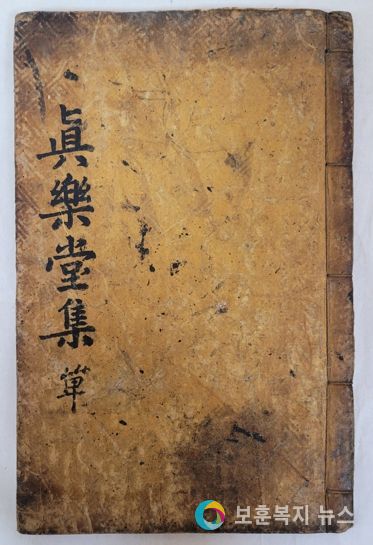 眞樂堂集 單
보훈복지 뉴스